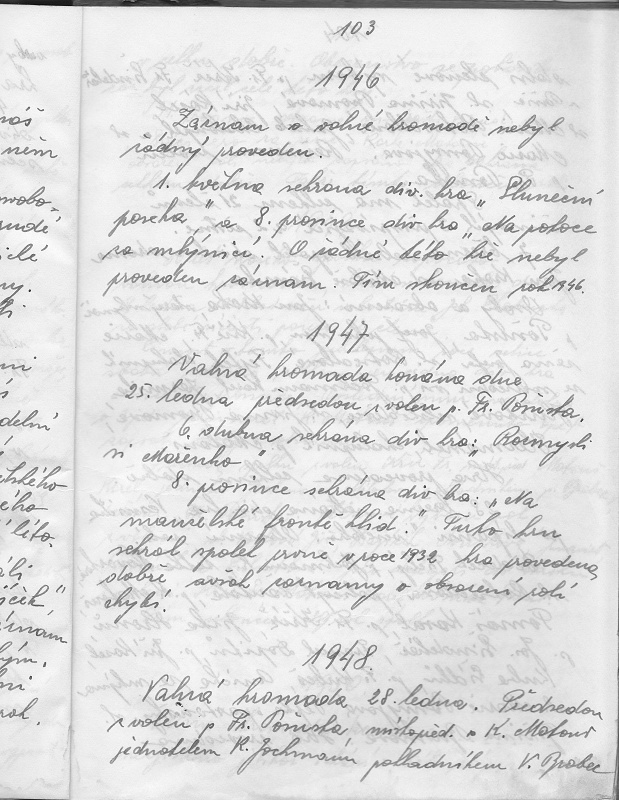 103
1946
Záznam o valné hromadě nebyl
žádný proveden.
1. května sehrána div. hra „Sluneční
paseka" a 8. prosince div hra „Na potoce
za mlýnicí. O žádné této hře nebyl
proveden záznam. Tím skončen rok 1946.
1947
Valná hromada konána dne
25. ledna předsedou zvolen p. Fr.
6. dubna sehrána div hra: „Rozmysli
si Mařenko"
8. prosince sehrána div hra: „Na
manželské frontě klid." Tuto hru
sehrál spolek prvně v roce 1932 hra provedena
dobře avšak záznamy o obsazení rolí
chybí.
1948.
Valná hromada 28. ledna. Předsedou
zvolen p Fr. místopřed. p K. Matouš
jednatelem K. Jochmann pokladníkem V. Brabec
ném
svobo-
ny.
delní
ětského
ého
léto-
áli
znam
ým.
rok.